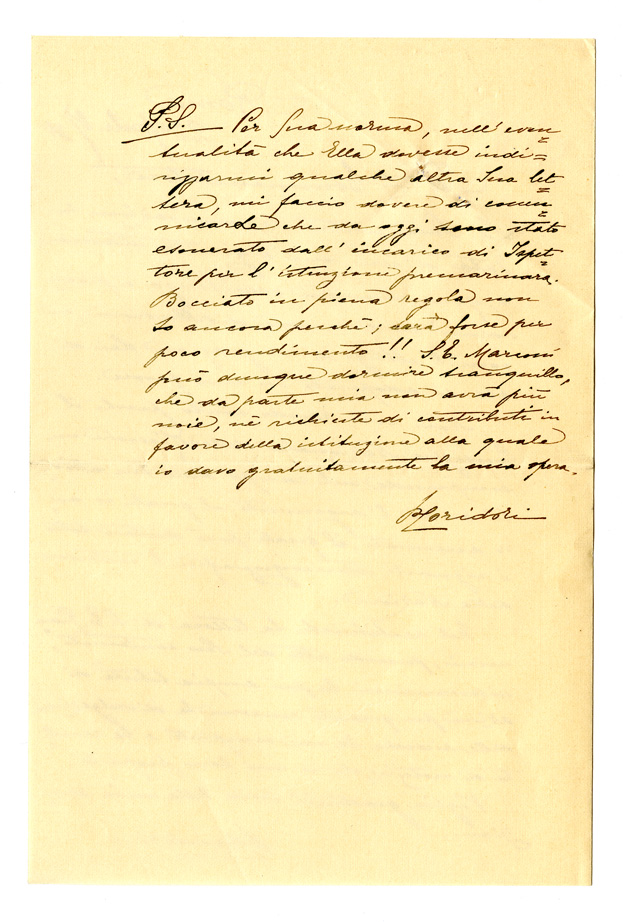 P.S. Per Sua norma, nell'even=
tualità che Ella dovesse indi=
rizzarmi qualche altra Sua let=
tera, mi faccio dovere di comu=
nicarle che da oggi sono stato
esonerato dall'incarico di Ispet=
tore per l'istruzione premarinara.
Bocciato in piena regola non
so ancora perchè; sarà forse per
poco rendimento!! S.E. Marconi
può dunque dormire tranquillo,
che da parte mia non avrà più
noie, nè richieste di contributi in
favore della istituzione alla quale
io davo gratuitamente la mia opera.